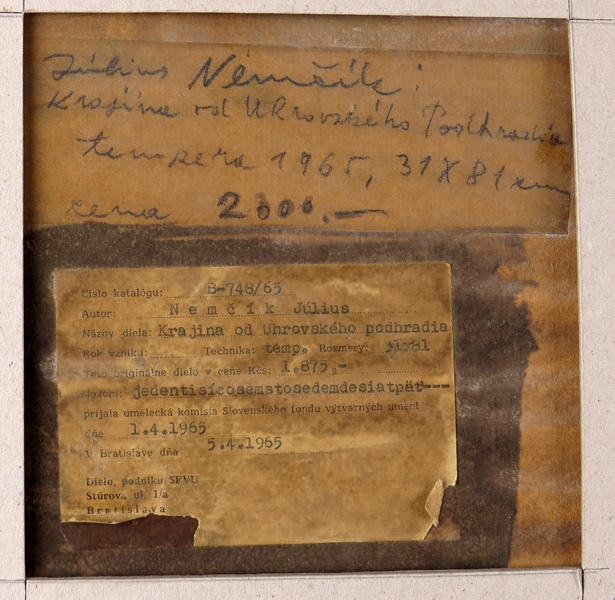 Július Nemčík:
Krajina od Uhrovského Podhradia
tempera 1965, 31 X 81 cm
cena 2000.—
Číslo katalógu: B-748/65
Autor: Nemčík Július
Názov diela: Krajina od Uhrovského podhradia
Rok vzniku: Technika: temp. Rozmery: 31x81
Toto originálne dielo v cene Kčs: 1.875,-
slovom: jedentisícosemstosedemdesiatpäť---
prijala umelecká komisia Slovenského fondu výtvarných umení
dňa 1.4.1965
V Bratislave dňa 5.4.1965
Dielo, podniku SFVU
Štúrova, ul. 1/a
Bratislava